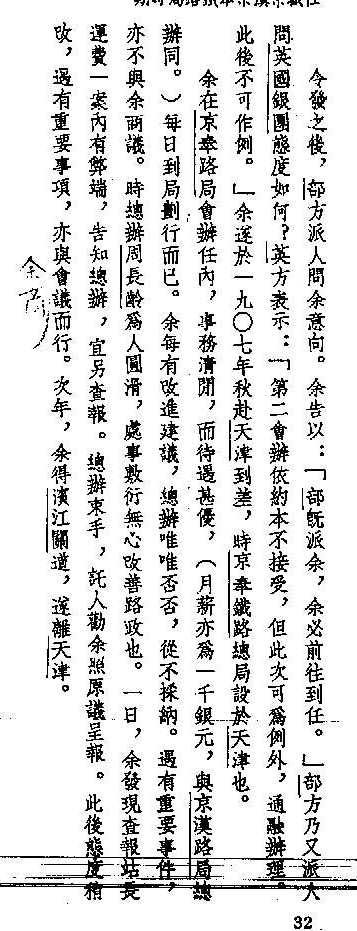 令發之後，部方派人問余意向。余告以：「部旣派余，余必前往到任。」部方乃又派人
問英國銀團態度如何？英方表示：「第二會辦依約本不接受，但此次可爲例外，通融辦理。
此後不可作例。」余遂於一九〇七年秋赴天津到差，時京奉鐵路總局設於天津也。
余在京奉路局會辦任內，事務淸閒，而待遇甚優，（月薪亦爲一千銀元，與京漢路局總
辦同。）每日到局劃行而已。余每有改進建議，總辦唯唯否否，從不採納。遇有重要事件，
亦不與余商議。時總辦周長齡爲人圓滑，處事敷衍無心改善路政也。一日，余發現查報站長
運費一案內有弊端，告知總辦，宜另查報。總辦束手，託人勸余照原議呈報。此後態度稍
改，遇有重要事項，亦與會議而行。次年，余得濱江關道，遂離天津。
余
32